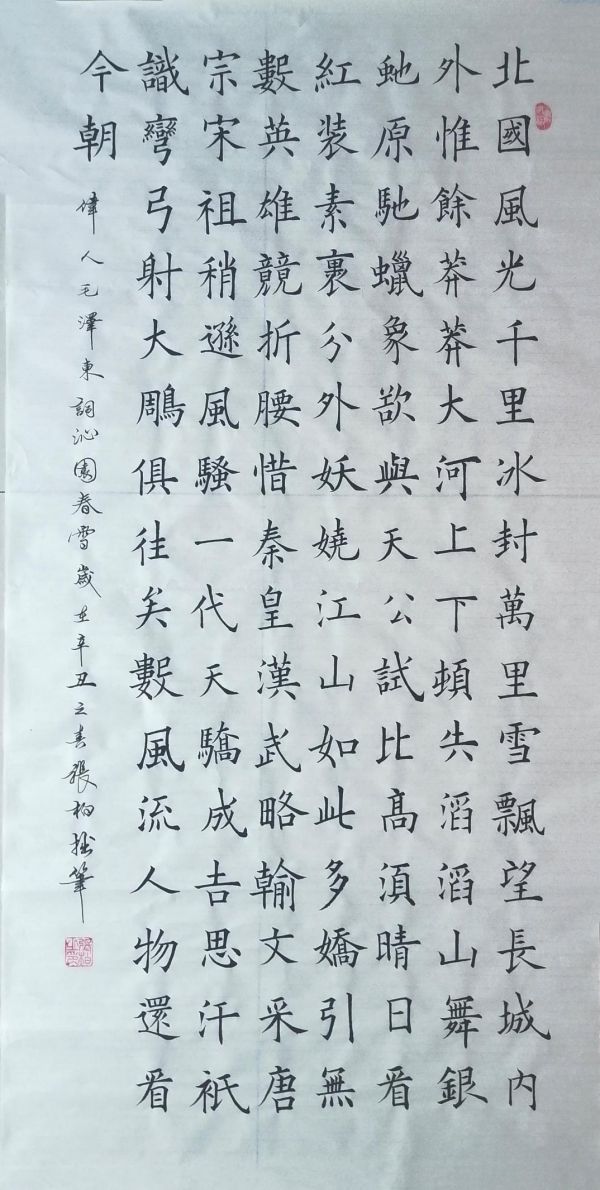 北國風光千里冰封萬里雪飄望長城内
外惟餘莽莽大河上下頓失滔滔山舞銀
虵原馳蠟象欲與天公試比高須晴日看
紅装素裹分外妖嬈江山如此多嬌引無
數英雄競折腰惜秦皇漢武略輸文采唐
宗宋祖稍遜風騷一代天驕成吉思汗祇
識彎弓射大鵰俱往矣數風流人物還看
今朝
偉人毛澤東詞沁園春雪歲在辛丑之春張柏拙筆